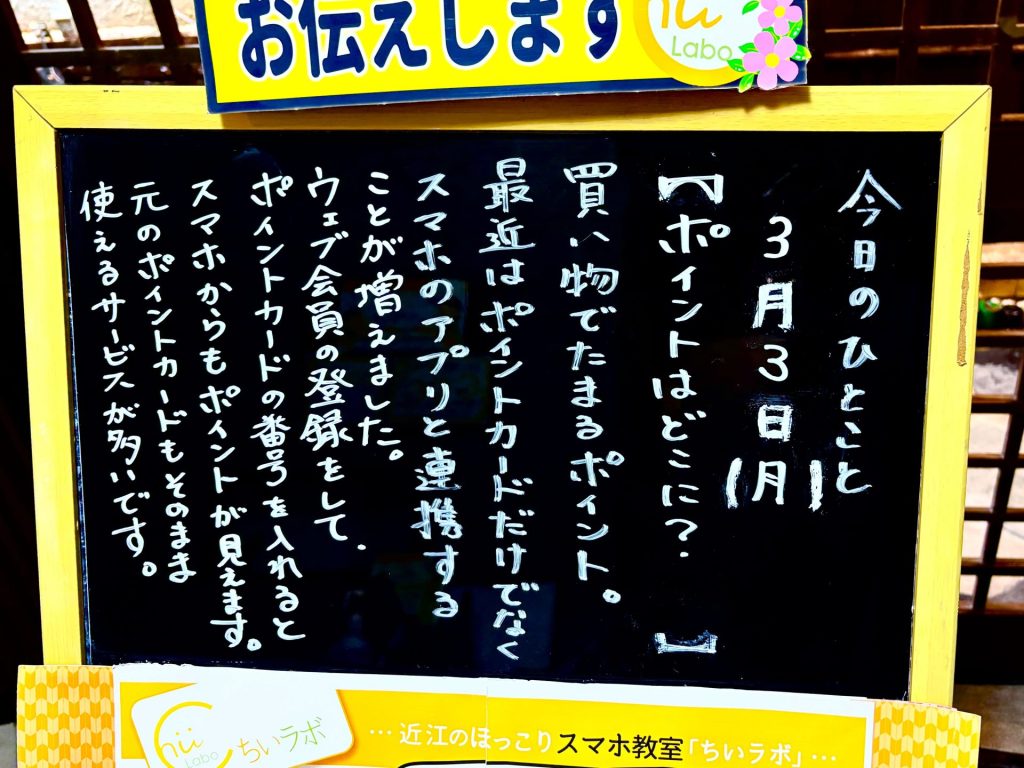 お伝えします
Labo
今日のひとこと
3月3日(月)
【ポイントはどこに?】
買い物でたまるポイント。
最近はポイントカードだけでなく
スマホのアプリと連携する
ことが増えました。
ウェブ会員の登録をして、
ポイントカードの番号を入れると
スマホからもポイントが見えます。
元のポイントカードもそのまま
使えるサービスが多いです。
Chii
Labo
ちいラボ
…近江のほっこりスマホ教室「ちいラボ」…